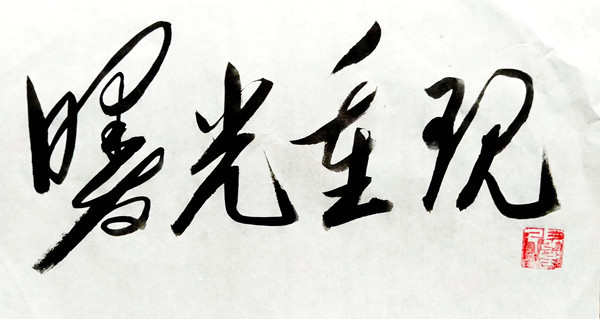 曙光重现